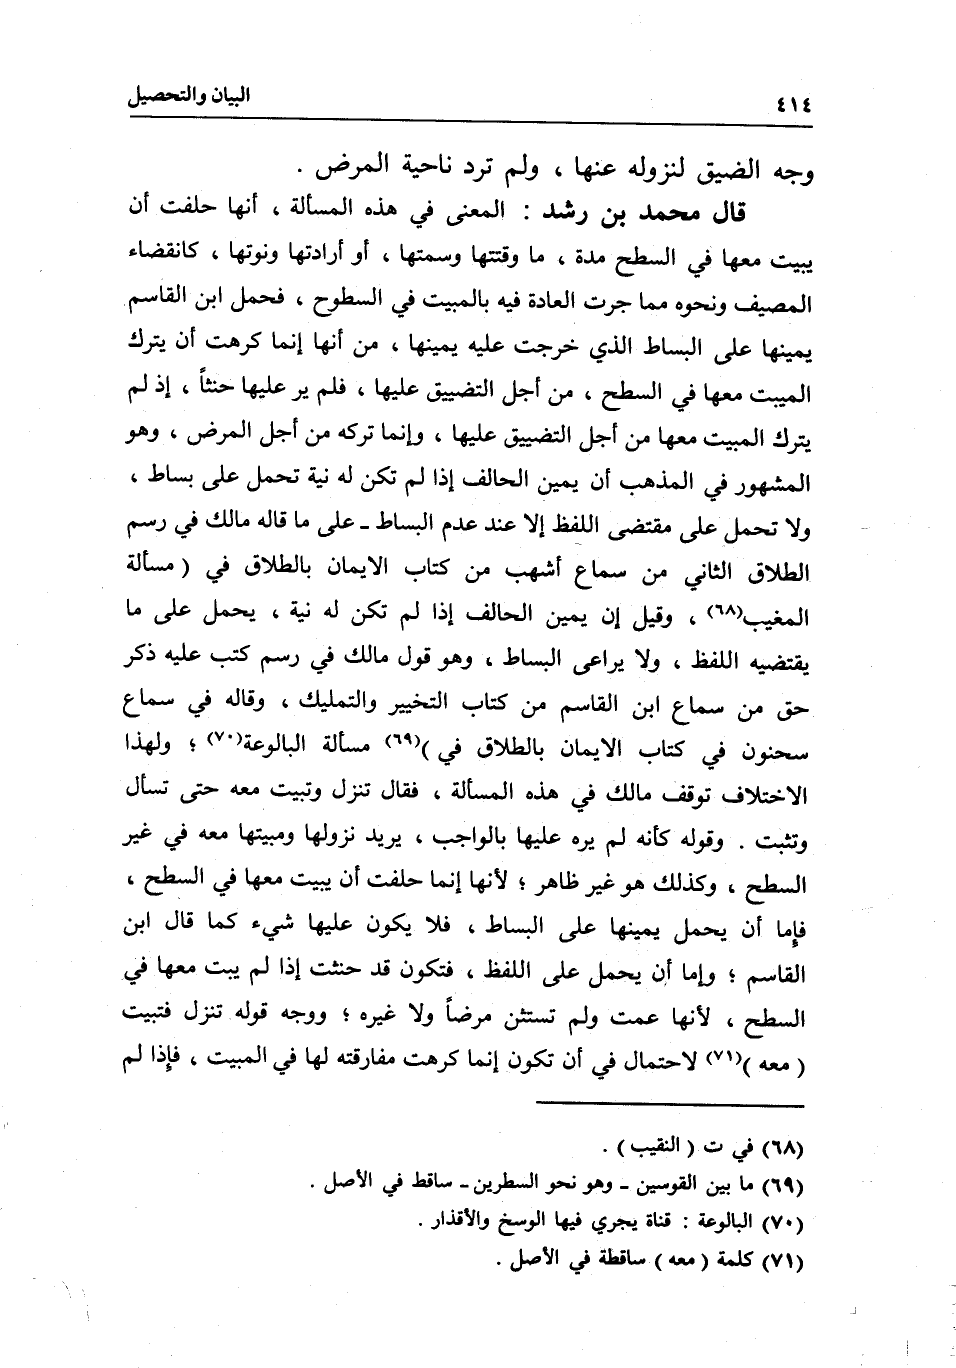 ٤١٤ البيان والتحصيل
وجه الضيق لنزوله عنها ، ولم ترد ناحية المرض .
قال محمد بن رشد : المعنى في هذه المسألة ، أنها حلفت أن
يبيت معها في السطح مدة ، ما وقتتها وسمتها ، أو أرادتها ونوتها ، كانقضاء
المصيف ونحوه مما جرت العادة فيه بالمبيت في السطوح ، فحمل ابن القاسم
يمينها على البساط الذي خرجت عليه يمينها ، من أنها إنما كرهت أن يترك
المبيت معها في السطح ، من أجل التضييق عليها ، فلم ير عليها حنثاً ، إذ لم
يترك المبيت معها من أجل التضييق عليها ، وإنما تركه من أجل المرض ، وهو
المشهور في المذهب أن يمين الحالف إذا لم تكن له نية تحمل على بساط ،
ولا تحمل على مقتضى اللفظ إلا عند عدم البساط ـ على ما قاله مالك في رسم
الطلاق الثاني من سماع أشهب من كتاب الايمان بالطلاق في ( مسألة
المغيب(٦٨) ، وقيل إن يمين الحالف إذا لم تكن له نية ، يحمل على ما
يقتضيه اللفظ ، ولا يراعى البساط ، وهو قول مالك في رسم كتب عليه ذكر
حق من سماع ابن القاسم من كتاب التخيير والتمليك ، وقاله في سماع
سحنون في كتاب الايمان بالطلاق في )(٦٩) مسألة البالوعة(٧٠) ؛ ولهذا
الاختلاف توقف مالك في هذه المسألة ، فقال تنزل وتبيت معه حتى تسأل
وتثبت . وقوله كأنه لم يره عليها بالواجب ، يريد نزولها ومبيتها معه في غير
السطح ، وكذلك هو غير ظاهر ؛ لأنها إنما حلفت أن يبيت معها في السطح ،
فإما أن يحمل يمينها على البساط ، فلا يكون عليها شيء كما قال ابن
القاسم ؛ وإما أن يحمل على اللفظ ، فتكون قد حنثت إذا لم يبت معها في
السطح ، لأنها عمت ولم تستثن مرضاً ولا غيره ؛ ووجه قوله تنزل فتبيت
( معه )(٧١) لاحتمال في أن تكون إنما كرهت مفارقته لها في المبيت ، فإذا لم
(٦٨) في ت ( النقيب ) .
(٦٩) ما بين القوسين ـ وهو نحو السطرين ـ ساقط في الأصل .
(٧٠) البالوعة : قناة يجري فيها الوسخ والأقذار .
(٧١) كلمة ( معه ) ساقطة في الأصل .